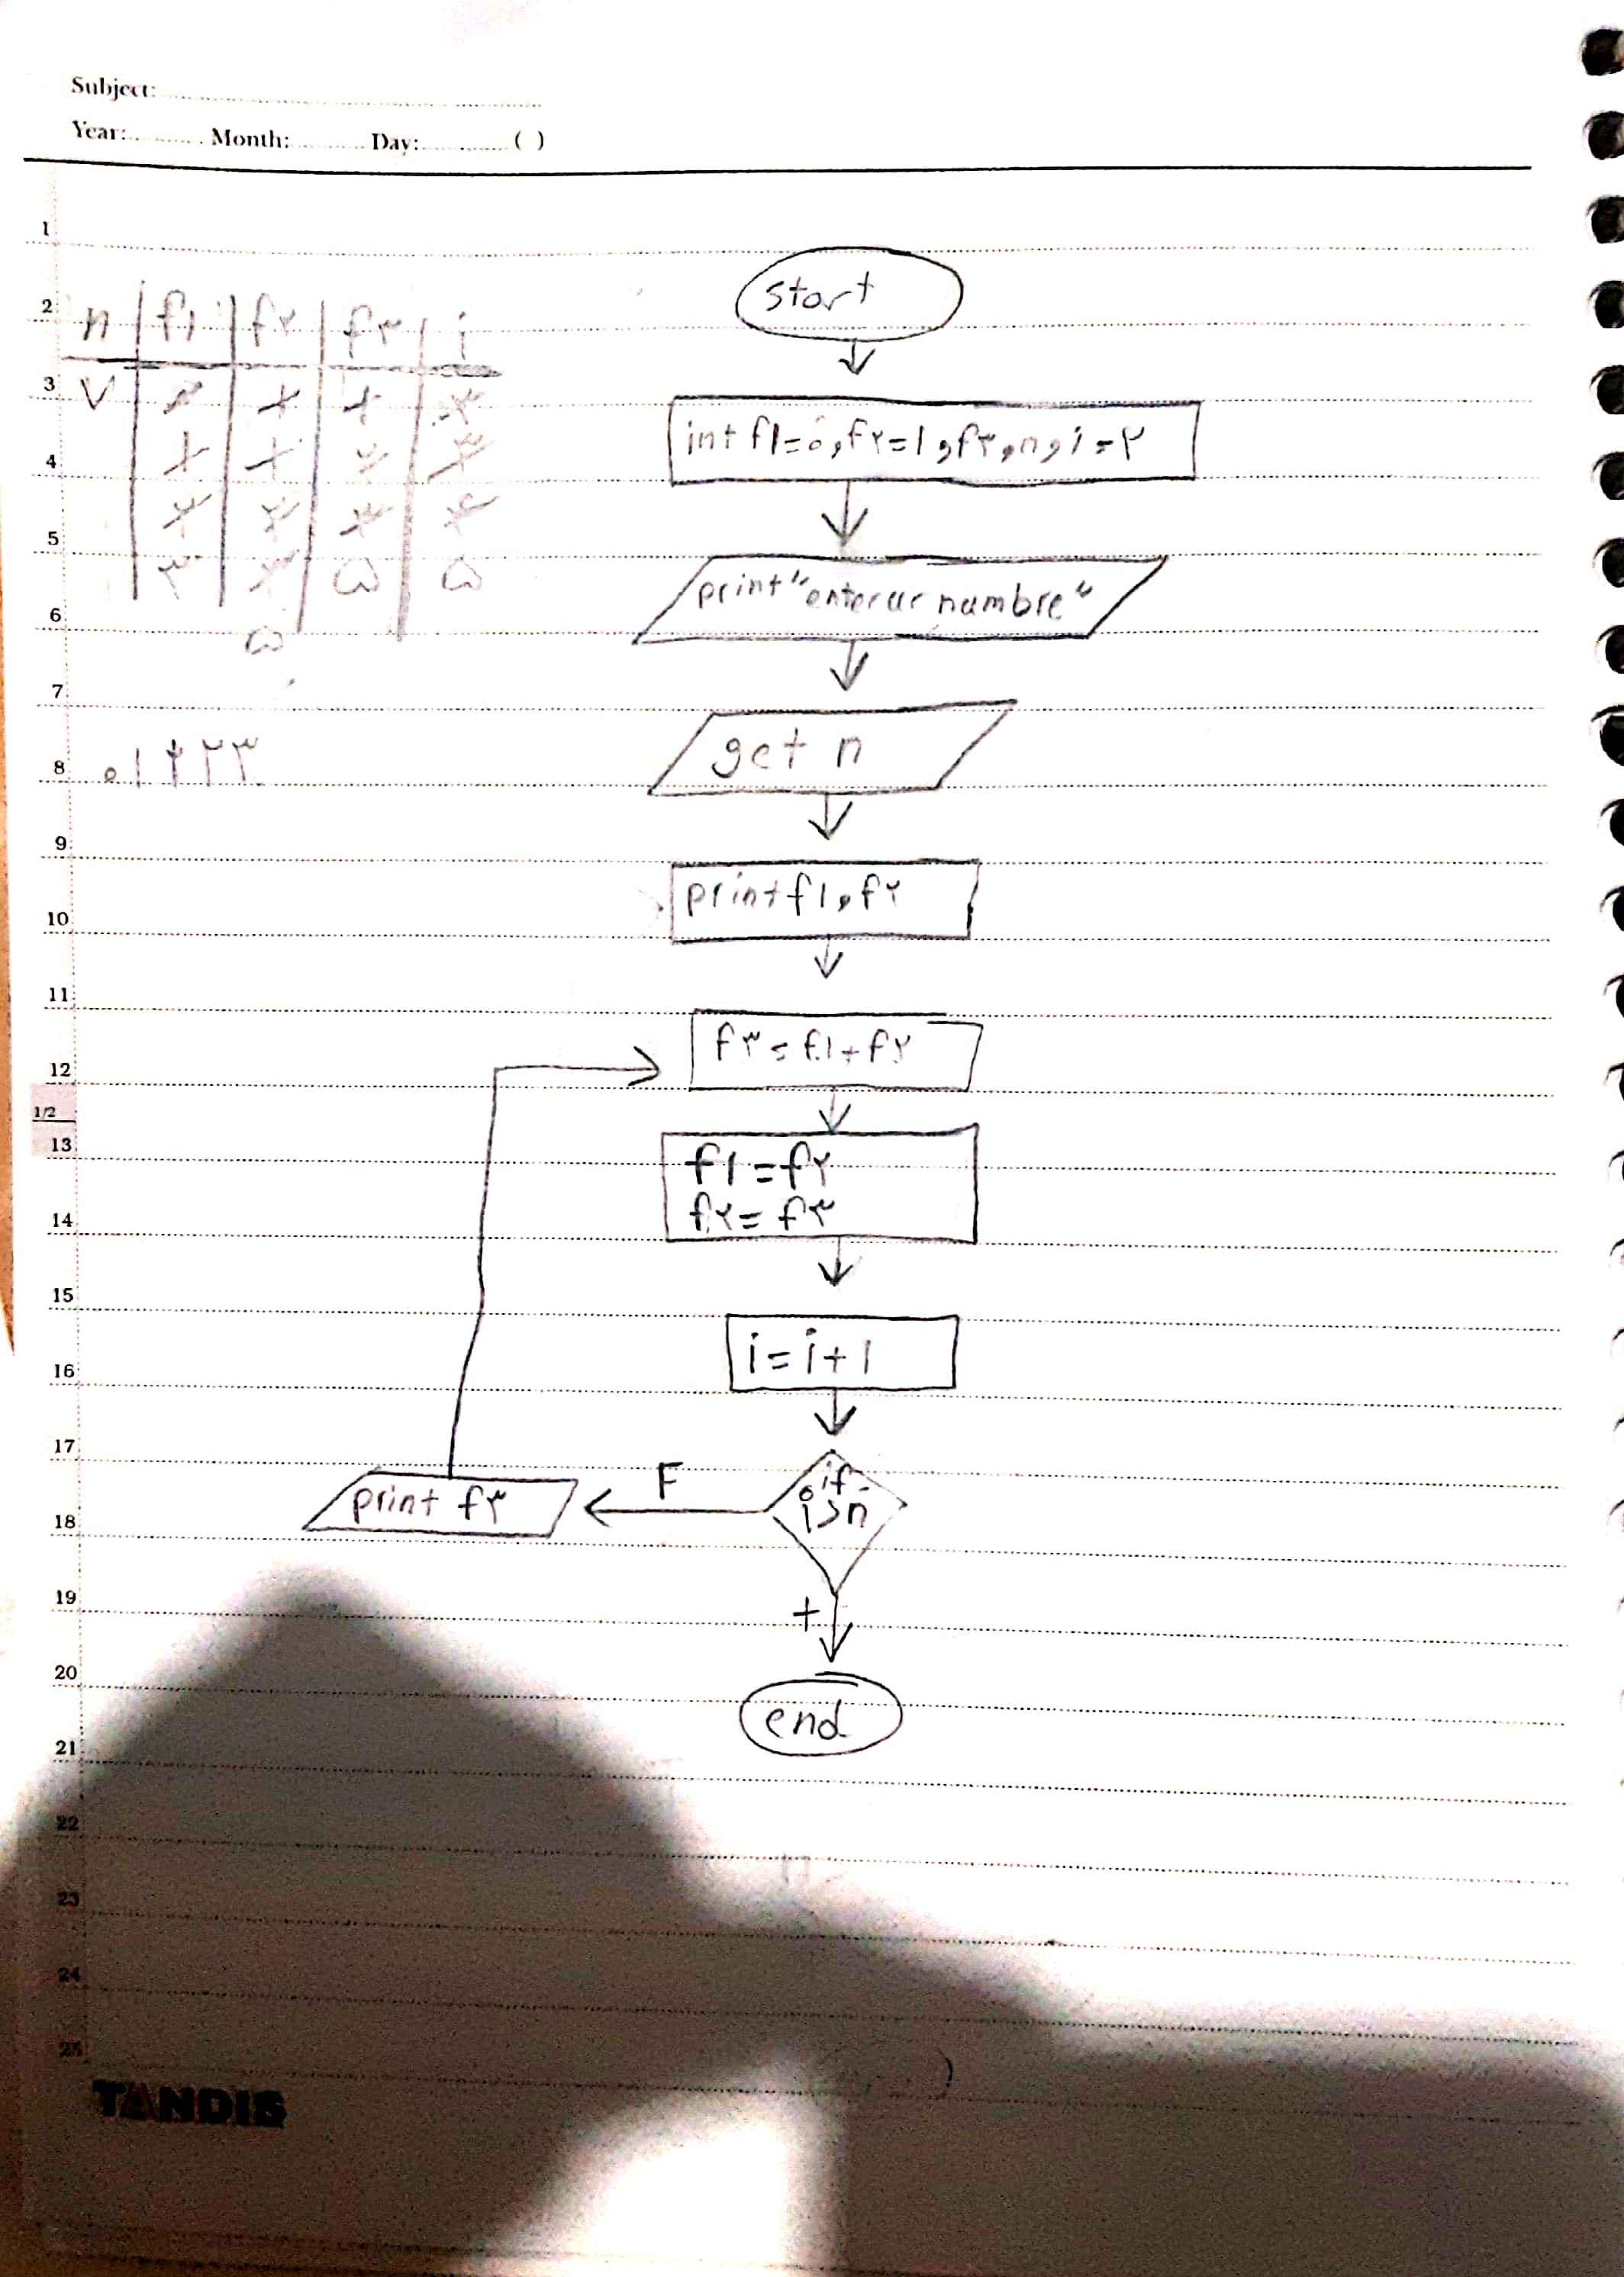 Subject:
Year: Month: Day: ( )
1
2
3
4
5
6
7
8
9
10
11
12
1/2
13
14
15
16
17
18
19
20
21
22
23
24
25
n f۱ f۲ f۳ i
۷
۳ ۵ ۵
۵
۰۱ ۲۳
start
int f۱=۰,f۲=۱,f۳,n,i=۲
print "enter ur numbre"
get n
print f۱,f۲
f۳=f۱+f۲
f۱=f۲
f۲=f۳
i=i+۱
if
i>n
F
print f۳
+
end
TANDIS